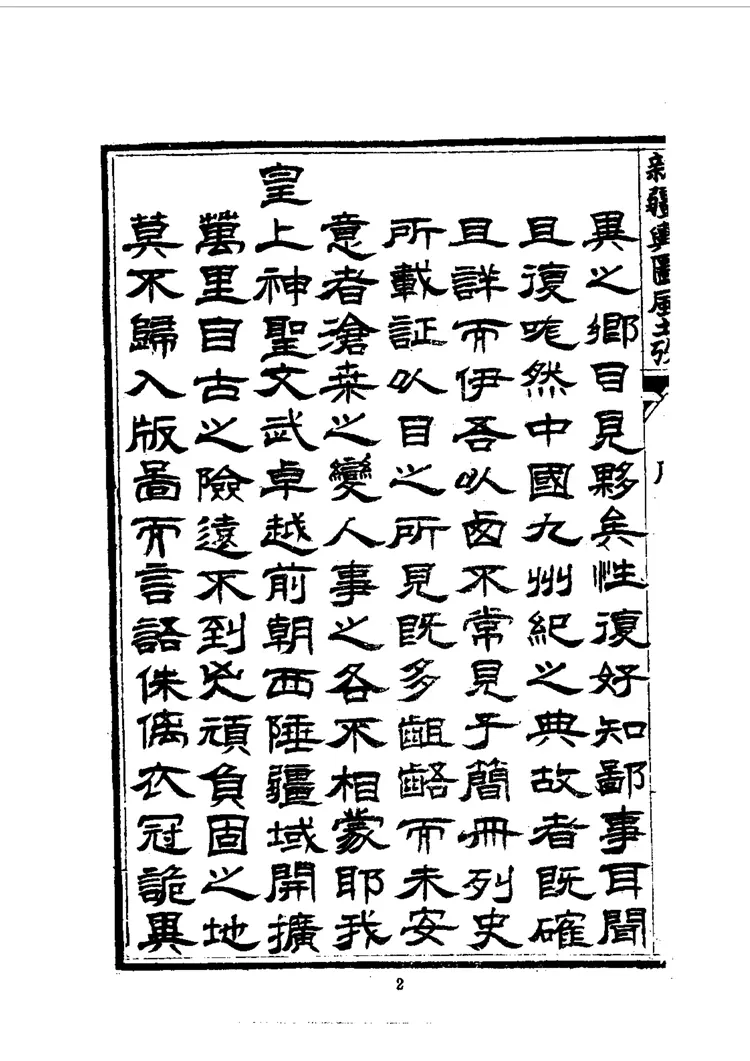 新疆輿圖風土攷
異之鄉目見夥矣性復好知鄙事耳聞
且復咤然中國九州紀之典故者既確
且詳而伊吾以西不常見于簡冊列史
所載証以目之所見既多齟齬而未安
意者滄桑之變人事之各不相蒙耶我
皇上神聖文武卓越前朝西陲疆域開擴
萬里自古之險遠不到兇頑負固之地
莫不歸入版圖而言語侏𠌯衣冠詭異
2